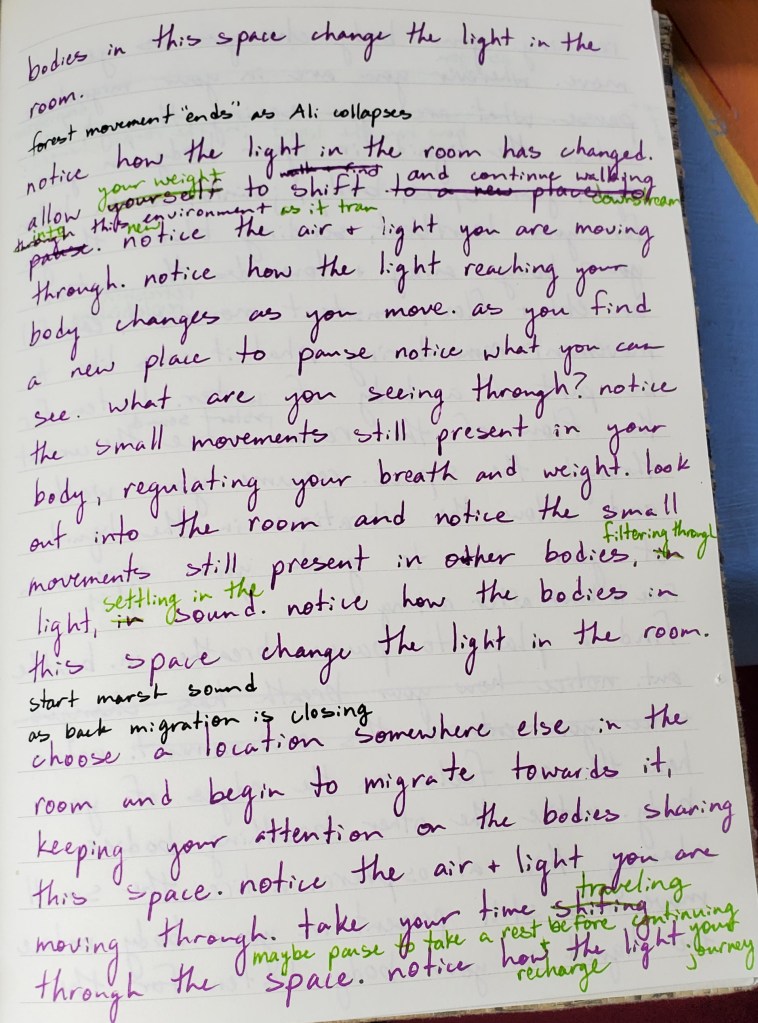 bodies in this space change the light in the
room.
forest movement "ends" as Ali collapses
notice how the light in the room has changed.
your weight walk + find and continue walking
allow yourself to shift to a new place to downstream
into this new environment as it tran
through
pause. notice the air + light you are moving
through. notice how the light reaching your
body changes as you move. as you find
a new place to pause notice what you can
see. what are you seeing through? notice
the small movements still present in your
body, regulating your breath and weight. look
out into the room and notice the small
filtering through
movements still present in other bodies, in
settling in the
light, in sound. notice how the bodies in
this space change the light in the room.
start marsh sound
as back migration is closing
choose a location somewhere else in the
room and begin to migrate towards it,
keeping your attention on the bodies sharing
this space. notice the air + light you are
traveling
moving through. take your time shifting
maybe pause to take a rest before continuing your journey
through the space. notice how the light
+ recharge